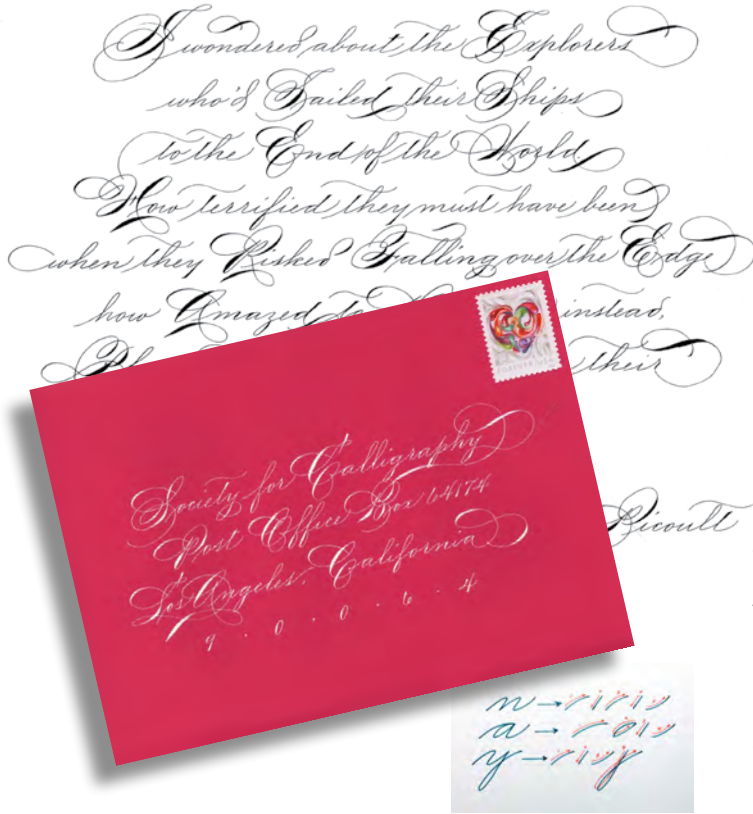 I wondered about the Explorers
who'd Sailed their Ships
to the End of the World
How terrified they must have been
when they Risked Falling over the Edge
how Amazed to instead,
their
Picoult
FOREVER USA
Society for Calligraphy
Post Office Box 64174
Los Angeles, California
9 · 0 · 0 · 6 · 4
n →
a →
y →